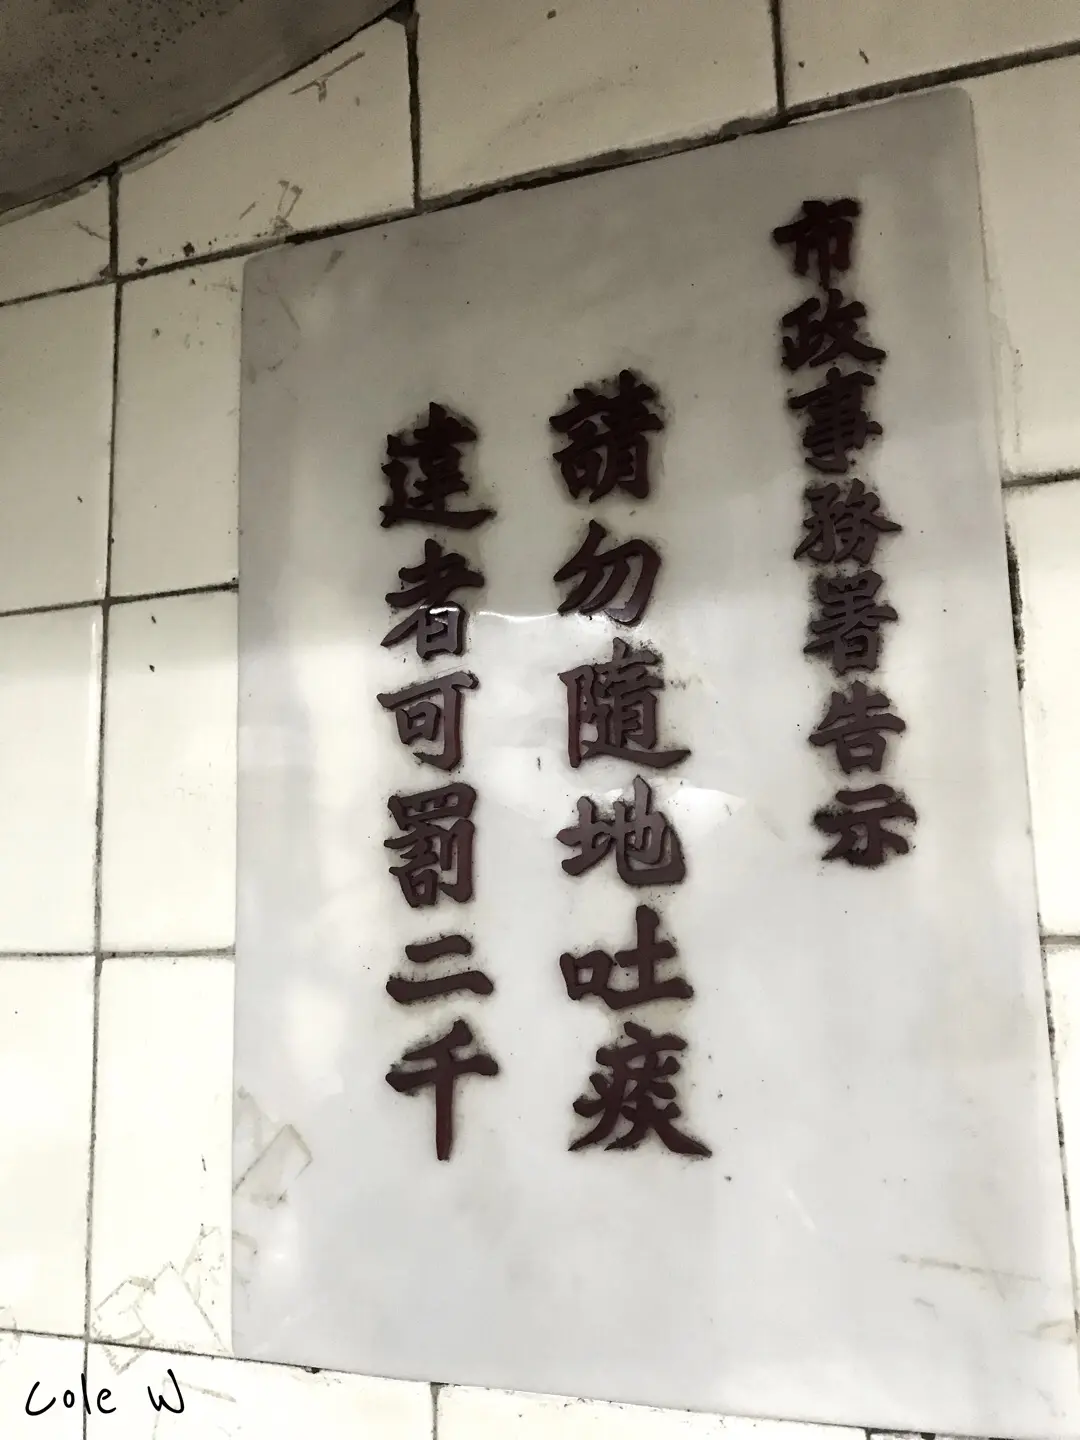 市政事務署告示
請勿隨地吐痰
違者可罰二千
Cole W